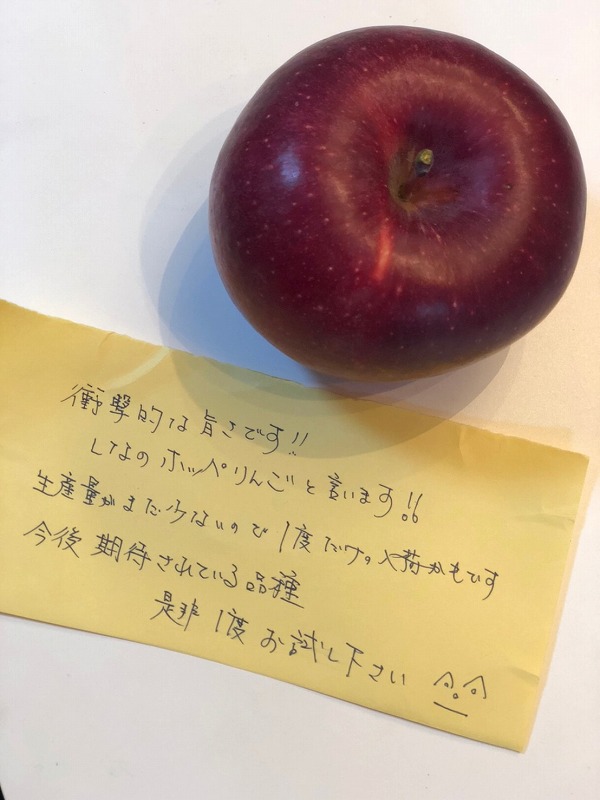 衝撃的な旨さです!!
しなの ホッペりんご と 言います!!
生産量がまだ少ないので 1度 だけの 入荷かもです
今後 期待されている 品種
是非 1度 お試し下さい